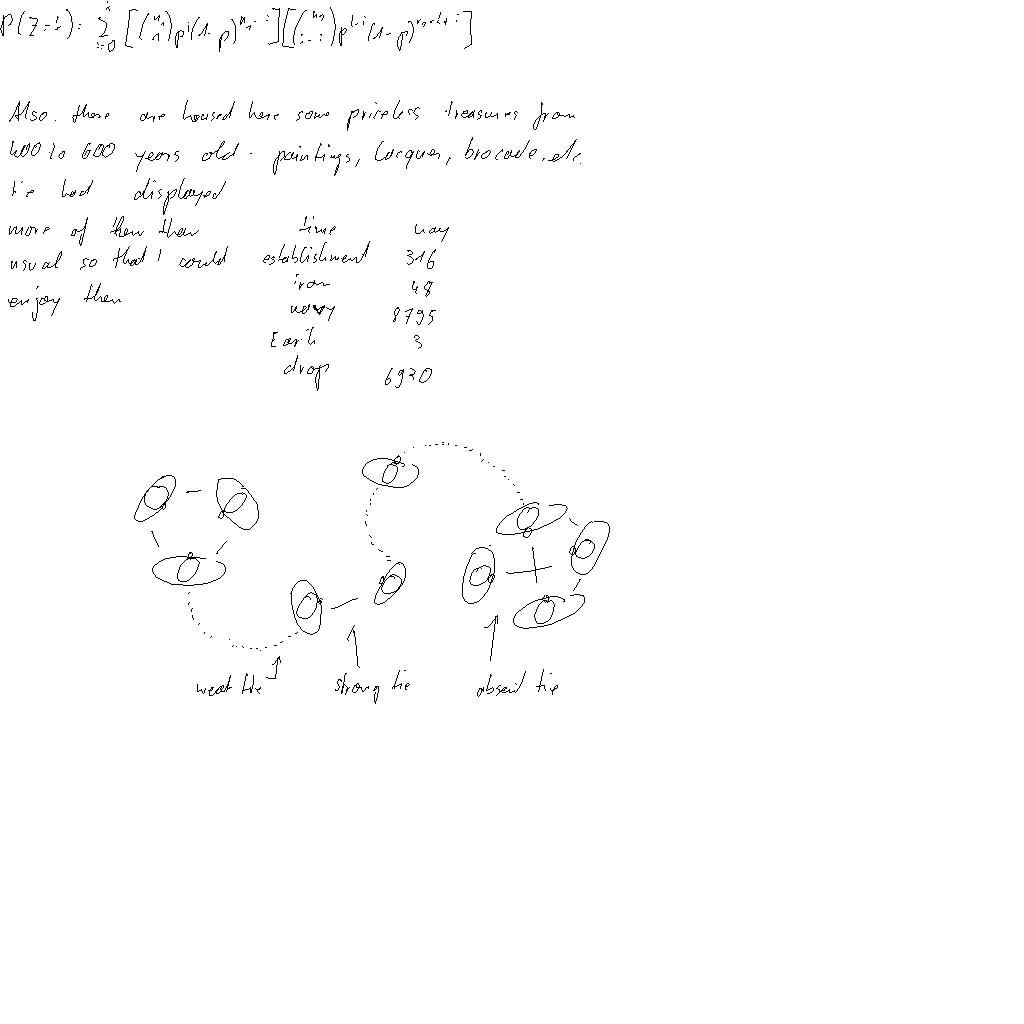 P(Z=k)= ∑ i=0 [(n1 i) p^i (1-p)^n1-i] [(n2 k-i) p^k-i (1-p)^n2-k+i]
Also. there are housed here some priceless treasures from
400 to 600 years old - paintings, lacquer, brocade, etc.
He had displayed
more of them than
usual so that I could
enjoy them
time way
establishment 316
iron 48
navy 8795
Earth 3
drop 6920
weak tie strong tie absent tie